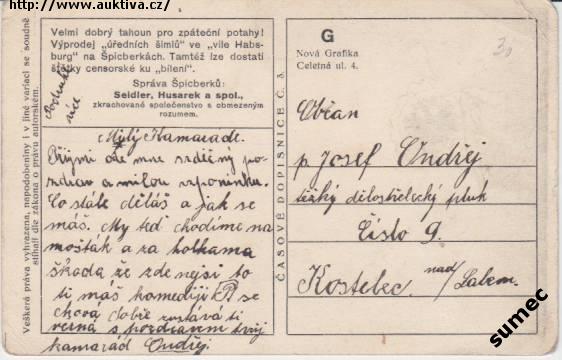 http://www.auktiva.cz/
Velmi dobrý tahoun pro zpáteční potahy!
Výprodej „úředních šimlů“ ve „vile Habs-
burg“ na Špicberkách. Tamtéž lze dostati
štětky censorské ku „bílení“.
Správa Špicberků:
Seidler, Husarek a spol.,
zkrachované společenstvo s obmezeným
rozumem.
více
Milý Kamaráde.
Přijmi ode mne srdečný po-
zdrav a milou vzpomínku.
Co stále děláš a jak se
máš. My teď chodíme na
mošták a za holkama
škoda že zde nejsi to
ti máš komediji P se
chová dobře zustává ti
věrná s pozdravem tvůj
kamarád Ondřej.
Veškerá práva vyhrazena, napodobeniny i v jiné variaci se soudně
stíhají dle zákona o právu autorském.
ČASOVÉ DOPISNICE Č. 5.
G
Nová Grafika
Celetná ul. 4.
30
Občan
p. Josef Ondřej
těžký dělostřelecký pluk
Číslo 9.
Kostelec nad/Labem.
sumec